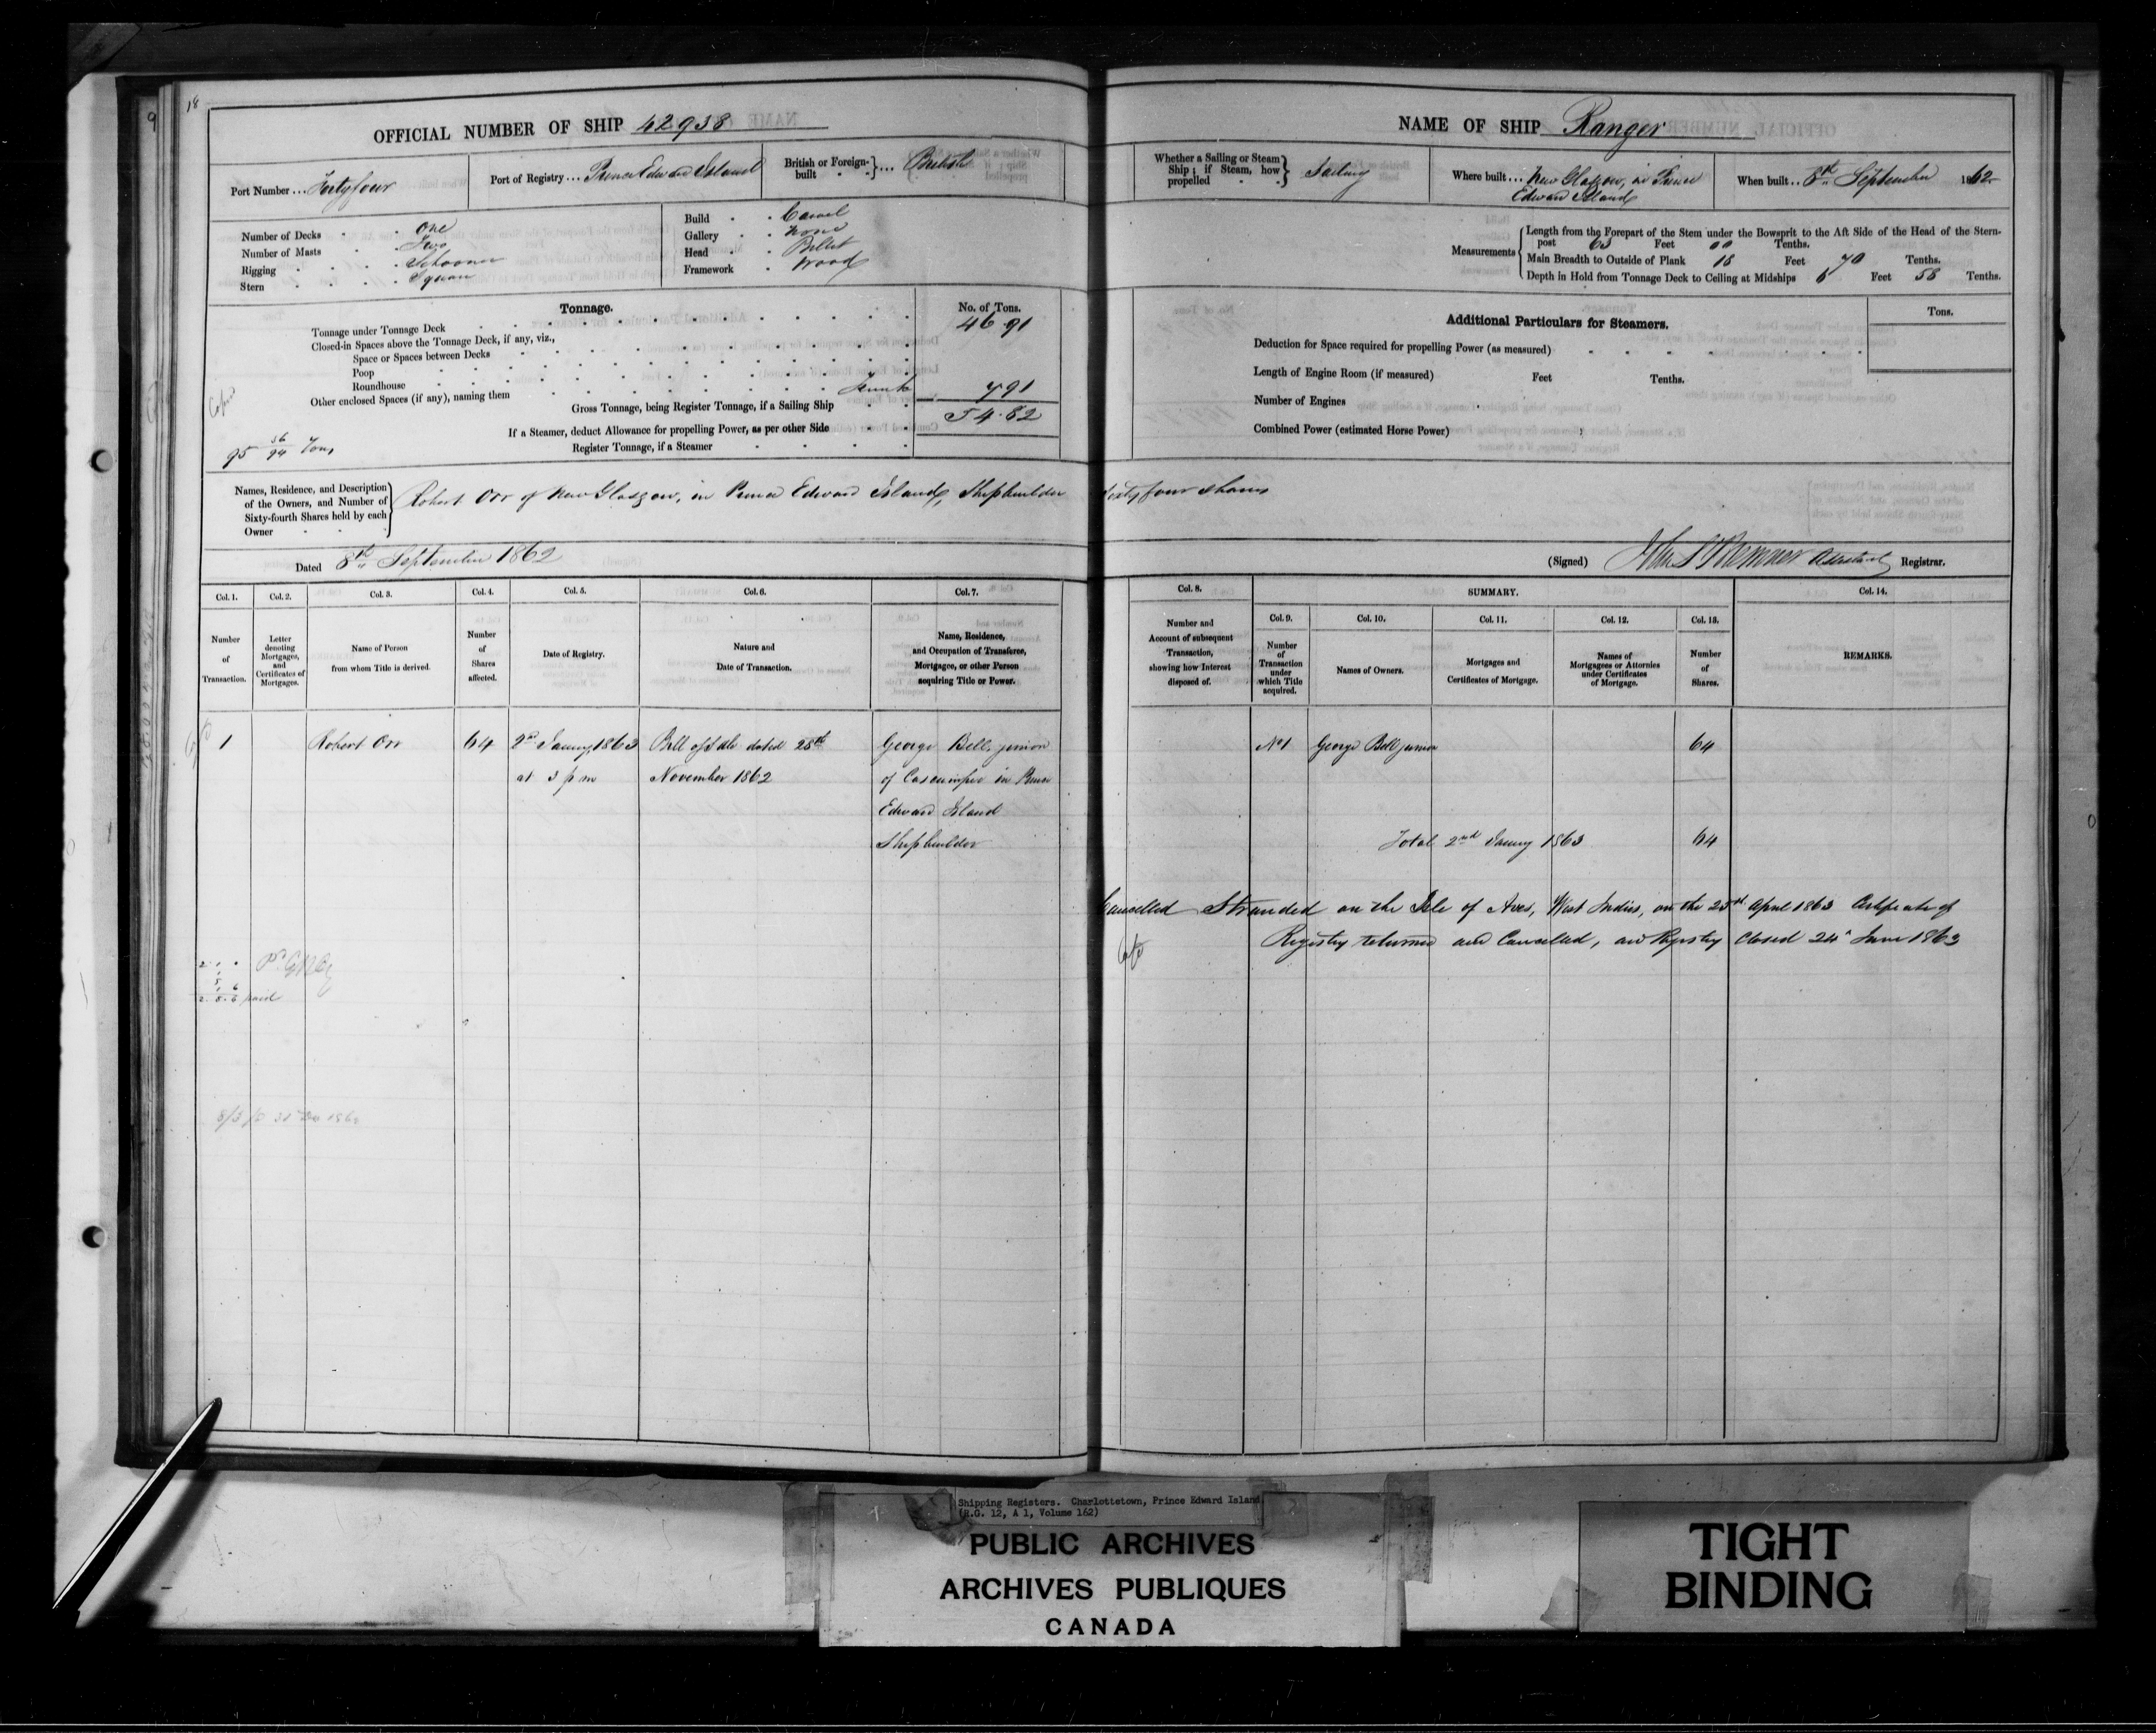 18
9
OFFICIAL NUMBER OF SHIP 42938
Port Number ... Fortyfour
Port of Registry ... Prince Edward Island
British or Foreign-built ... British
Number of Decks . . One
Number of Masts . . Two
Rigging . . . Schooner
Stern . . . Square
Build . . Carvel
Gallery . . None
Head . . Billet
Framework . Wood
Tonnage.
No. of Tons.
Tonnage under Tonnage Deck 46.91
Closed-in Spaces above the Tonnage Deck, if any, viz.,
Space or Spaces between Decks
Poop
Roundhouse
Other enclosed Spaces (if any), naming them Trunk 7 91
Gross Tonnage, being Register Tonnage, if a Sailing Ship 54.82
If a Steamer, deduct Allowance for propelling Power, as per other Side
Register Tonnage, if a Steamer
95 56/94 Tons
NAME OF SHIP Ranger
Whether a Sailing or Steam Ship; if Steam, how propelled Sailing
Where built ... New Glasgow, in Prince
Edward Island
When built .. 8th September 1862
Measurements
Length from the Forepart of the Stem under the Bowsprit to the Aft Side of the Head of the Stern-
post 63 Feet 00 Tenths.
Main Breadth to Outside of Plank 18 Feet 70 Tenths.
Depth in Hold from Tonnage Deck to Ceiling at Midships 6 Feet 58 Tenths.
Additional Particulars for Steamers.
Tons.
Deduction for Space required for propelling Power (as measured)
Length of Engine Room (if measured) Feet Tenths.
Number of Engines
Combined Power (estimated Horse Power)
Names, Residence, and Description
of the Owners, and Number of
Sixty-fourth Shares held by each
Owner
Robert Orr of New Glasgow, in Prince Edward Island, Shipbuilder Sixty four shares
Dated 8th September 1862
(Signed) Assistant Registrar.
Col. 1. Col. 2. Col. 3. Col. 4. Col. 5. Col. 6. Col. 7.
Number of Transaction.
Letter denoting Mortgages, and Certificates of Mortgages.
Name of Person from whom Title is derived.
Number of Shares affected.
Date of Registry.
Nature and Date of Transaction.
Name, Residence, and Occupation of Transferee, Mortgagee, or other Person acquiring Title or Power.
Col. 8. SUMMARY. Col. 14.
Col. 9. Col. 10. Col. 11. Col. 12. Col. 13.
Number and Account of subsequent Transaction, showing how Interest disposed of.
Number of Transaction under which Title acquired.
Names of Owners.
Mortgages and Certificates of Mortgage.
Names of Mortgagees or Attornies under Certificates of Mortgage.
Number of Shares.
REMARKS.
1 Robert Orr 64 2nd Janny 1863 Bill of Sale dated 28th George Bell, junior
at 3 pm November 1862 of Cascumpec in Prince
Edward Island
Shipbuilder
No 1 George Bell junior 64
Total 2nd Janny 1863 64
Cancelled Stranded on the Isle of Aves, West Indies, on the 23rd April 1863 Certificate of
Registry returned and Cancelled, and Registry Closed 24th June 1863
2 . 5 . 6 paid
Shipping Registers. Charlottetown, Prince Edward Island
(R.G. 12, A 1, Volume 162)
PUBLIC ARCHIVES
ARCHIVES PUBLIQUES
CANADA
TIGHT
BINDING